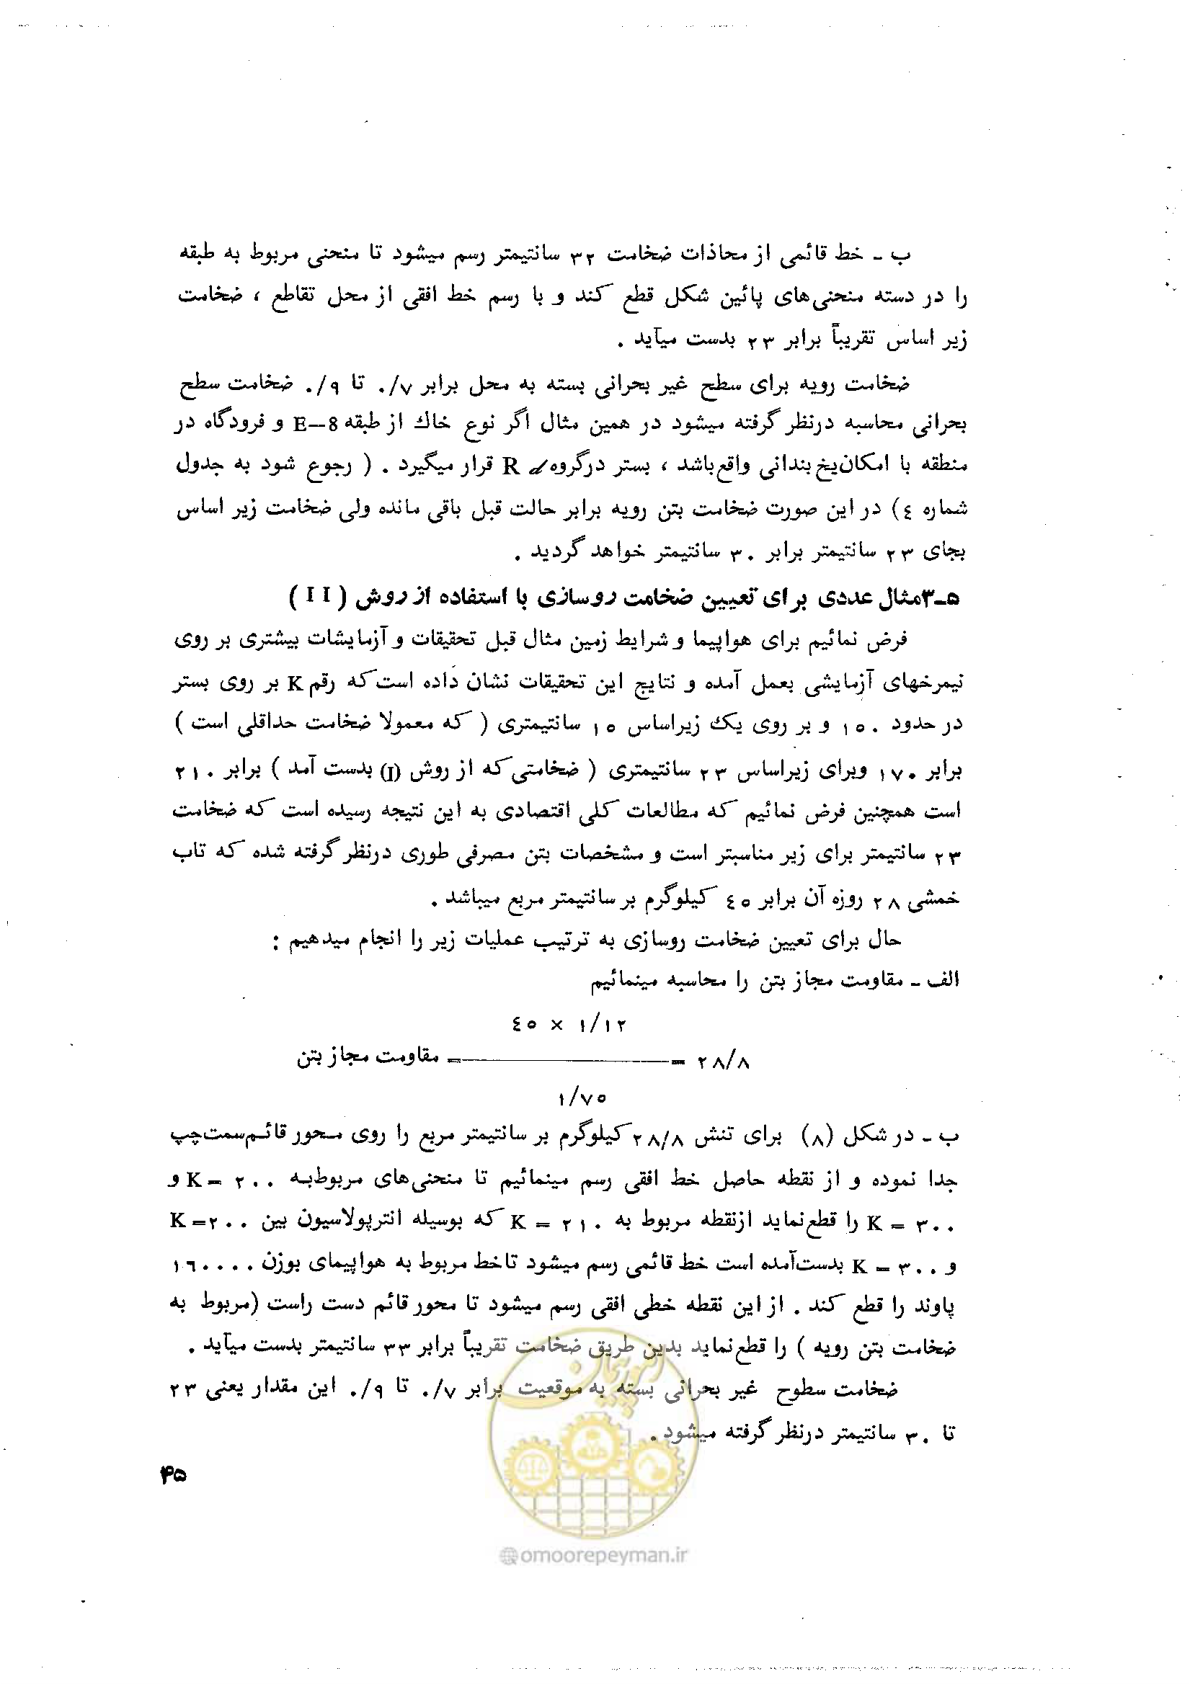 ب ـ خط قائمی از محاذات ضخامت ۳۲ سانتیمتر رسم میشود تا منحنی مربوط به طبقه
را در دسته منحنی‌های پائین شکل قطع کند و با رسم خط افقی از محل تقاطع ، ضخامت
زیر اساس تقریباً برابر ۲۳ بدست میآید .
ضخامت رویه برای سطح غیر بحرانی بسته به محل برابر ۰/۷ تا ۰/۹ ضخامت سطح
بحرانی محاسبه درنظر گرفته میشود در همین مثال اگر نوع خاك از طبقه E–8 و فرودگاه در
منطقه با امکان یخ بندانی واقع باشد ، بستر درگروه R قرار میگیرد . ( رجوع شود به جدول
شماره ٤) در این صورت ضخامت بتن رویه برابر حالت قبل باقی مانده ولی ضخامت زیر اساس
بجای ۲۳ سانتیمتر برابر ۳۰ سانتیمتر خواهد گردید .
۵ـ۳ مثال عددی برای تعیین ضخامت روسازی با استفاده از روش ( I I )
فرض نمائیم برای هواپیما و شرایط زمین مثال قبل تحقیقات و آزمایشات بیشتری بر روی
نیمرخهای آزمایشی بعمل آمده و نتایج این تحقیقات نشان داده است که رقم K بر روی بستر
در حدود ۱۵۰ و بر روی یك زیراساس ۱۵ سانتیمتری ( که معمولا ضخامت حداقلی است )
برابر ۱۷۰ وبرای زیراساس ۲۳ سانتیمتری ( ضخامتی که از روش (I) بدست آمد ) برابر ۲۱۰
است همچنین فرض نمائیم که مطالعات کلی اقتصادی به این نتیجه رسیده است که ضخامت
۲۳ سانتیمتر برای زیر مناسبتر است و مشخصات بتن مصرفی طوری درنظر گرفته شده که تاب
خمشی ۲۸ روزه آن برابر ٤۵ کیلوگرم بر سانتیمتر مربع میباشد .
حال برای تعیین ضخامت روسازی به ترتیب عملیات زیر را انجام میدهیم :
الف ـ مقاومت مجاز بتن را محاسبه مینمائیم
٤۵ × ۱/۱۲
مقاومت مجاز بتن = ـــــــــــ = ۲۸/۸
۱/۷۵
ب ـ در شکل (۸) برای تنش ۲۸/۸ کیلوگرم بر سانتیمتر مربع را روی محور قائم سمت چپ
جدا نموده و از نقطه حاصل خط افقی رسم مینمائیم تا منحنی‌های مربوط به K = ۲۰۰ و
K = ۳۰۰ را قطع نماید ازنقطه مربوط به K = ۲۱۰ که بوسیله انترپولاسیون بین K = ۲۰۰
و K = ۳۰۰ بدست آمده است خط قائمی رسم میشود تا خط مربوط به هواپیمای بوزن ۱۶۰۰۰۰
پاوند را قطع کند . از این نقطه خطی افقی رسم میشود تا محور قائم دست راست (مربوط به
ضخامت بتن رویه ) را قطع نماید بدین طریق ضخامت تقریباً برابر ۳۳ سانتیمتر بدست میآید .
ضخامت سطوح غیر بحرانی بسته به موقعیت برابر ۰/۷ تا ۰/۹ این مقدار یعنی ۲۳
تا ۳۰ سانتیمتر درنظر گرفته میشود .
۴۵
امور پیمان
@omoorepeyman.ir